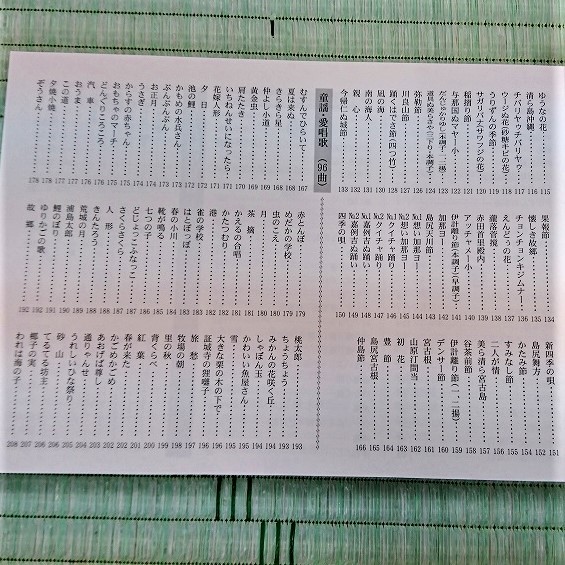 ゆうなの花‥115
清ら島沖縄‥116
ウージぬ花(砂糖キビの花)‥118
うりずんの季節‥119
サガリバナ(サワフジの花)‥120
稲摺り節‥121
与那国ぬマヤー小‥122
だんじゅかりゆし(本調子・二揚)‥123
道具ぬ美らさや(三下り・本調子)‥124
弥勒節
川良山節
踊くはでさ節(四ツ竹)
凪の海
南の海人
親心‥132
今帰仁ぬ城節‥133
果報節‥134
懐しき故郷‥135
チョンチョンキジムナー‥136
えんどぅの花
瀧落菅撹
赤田首里殿内‥139
アッチャメー小‥140
伊計離り節(本調子)(早調子)
加那ヨー‥142
島尻天川節‥143
№1想い加那ヨー
№2想い加那ヨー
№1クイチャー踊り
№2クイチャー踊り
№1嘉例吉ぬ踊い
№2嘉例吉ぬ踊い‥149
四季の唄‥150
新四季の唄‥151
島尻舞方‥152
かたみ節‥154
すみなし節‥155
二人が情‥156
美ら清ら宮古島
谷茶前節‥158
伊計離り節(一二揚)‥159
デンサー節‥160
宮古根‥161
山原汀間当‥162
初花‥163
豊節‥164
島尻宮古根‥165
仲島節‥166
童謡・愛唱歌(96曲)
むすんでひらいて‥167
夏は来ぬ‥168
きらきら星
仲よし小道
黄金虫
肩たたき
いちねんせいになったら
花嫁人形
夕日
池の鯉
かもめの水兵さん
ぶんぶんぶん
お正月
うさぎ
からすの赤ちゃん
おもちゃのマーチ
どんぐりころころ
汽車
おうま
この道
夕焼小焼‥178
ぞうさん‥178
赤とんぼ‥179
めだかの学校‥179
虫のこえ
月
茶摘
かえるの合唱
かたつむり
港
雀の学校
はとぽっぽ
春の小川
靴が鳴る
七つの子
どじょっこふなっこ
さくらさくら
人形
きんたろう
荒城の月
浦島太郎
鯉のぼり
ゆりかごの歌
故郷‥192
桃太郎‥193
ちょうちょう‥193
みかんの花咲く丘
しゃぼん玉
かわいい魚屋さん
雪
大きな栗の木の下で
証城寺の狸囃子
旅愁
牧場の朝
里の秋
背くらべ
紅葉
春が来た
かごめかごめ
あおげば尊し
通りゃんせ
うれしいひな祭り
砂山
てるてる坊主
椰子の実
われは海の子‥208